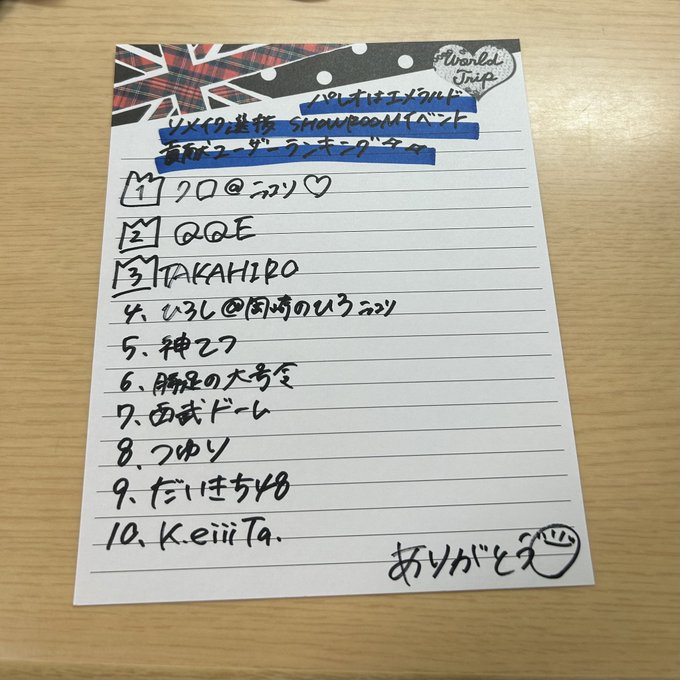 World
Trip
パレオはエメラルド
リメイク選抜 SHOWROOMイベント
貢献ユーザーランキング
1 クロ@ニコリ♡
2 QQE
3 TAKAHIRO
4. ひろし@岡崎のひろニコリ
5. 神てつ
6. 豚足の大号令
7. 西武ドーム
8. つゆり
9. だいきち48
10. K.eiiiTa.
ありがとう